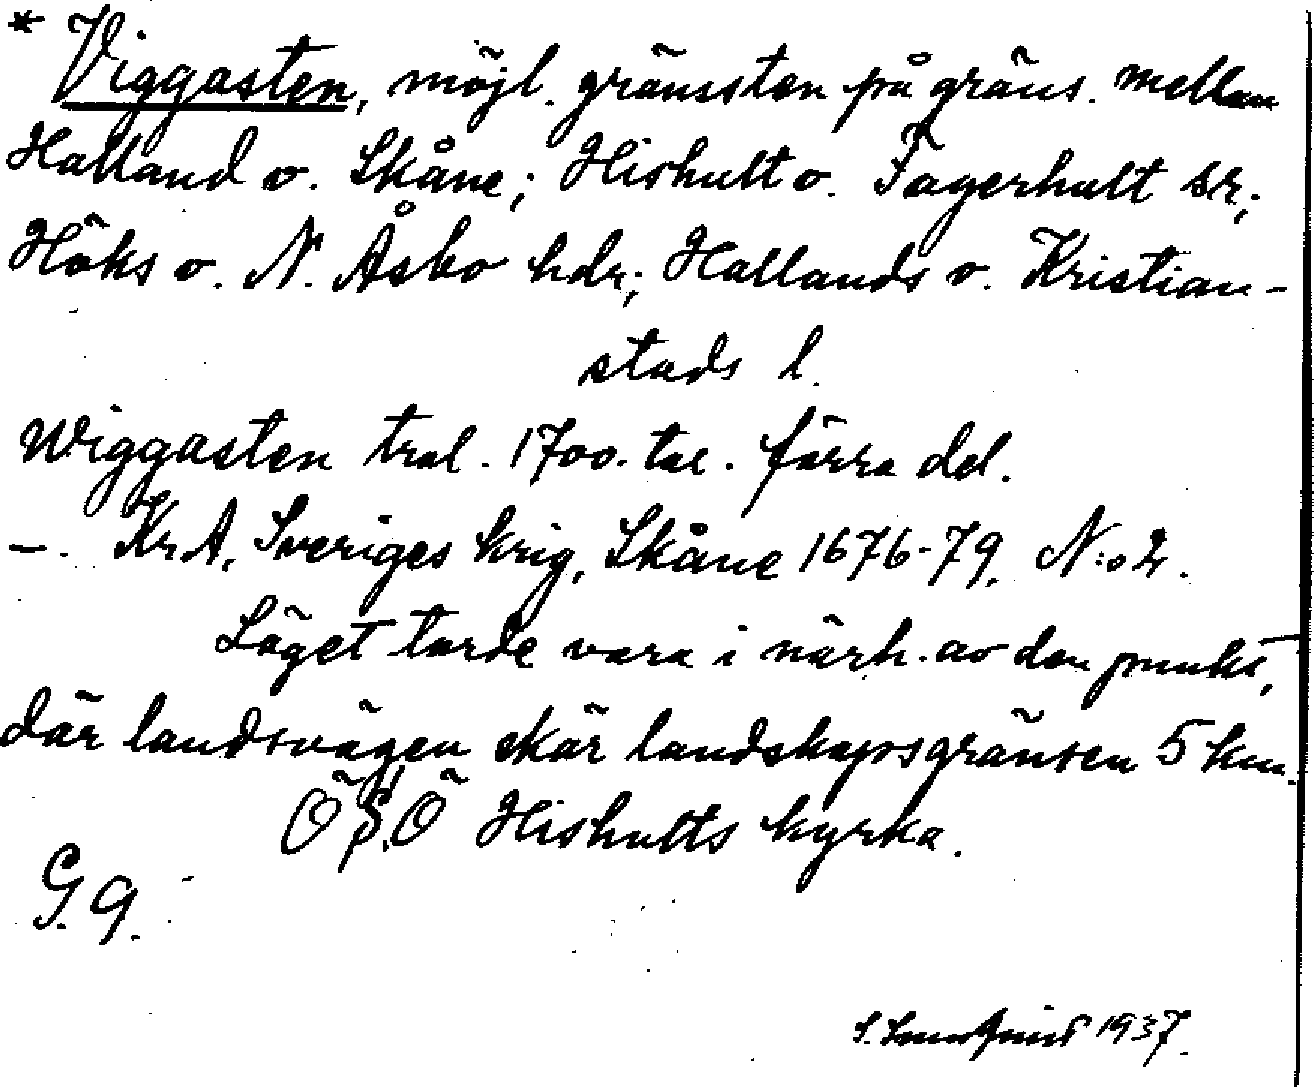 * Viggasten, möjl. gränssten på gräns. mellan
Halland o. Skåne; Hishult o. Fagerhult sr;
Höks o. N. Åsbo hdr; Hallands o. Kristian-
stads l.
Wiggasten trol. 1700-tal. förra del.
—. Kr.A. Sveriges krig, Skåne 1676-79. N:o 2.
Läget torde vara i närh. av den punkt,
där landsvägen skär landskapsgränsen 5 km.
ÖSÖ Hishults kyrka.
G. 9.
1937.